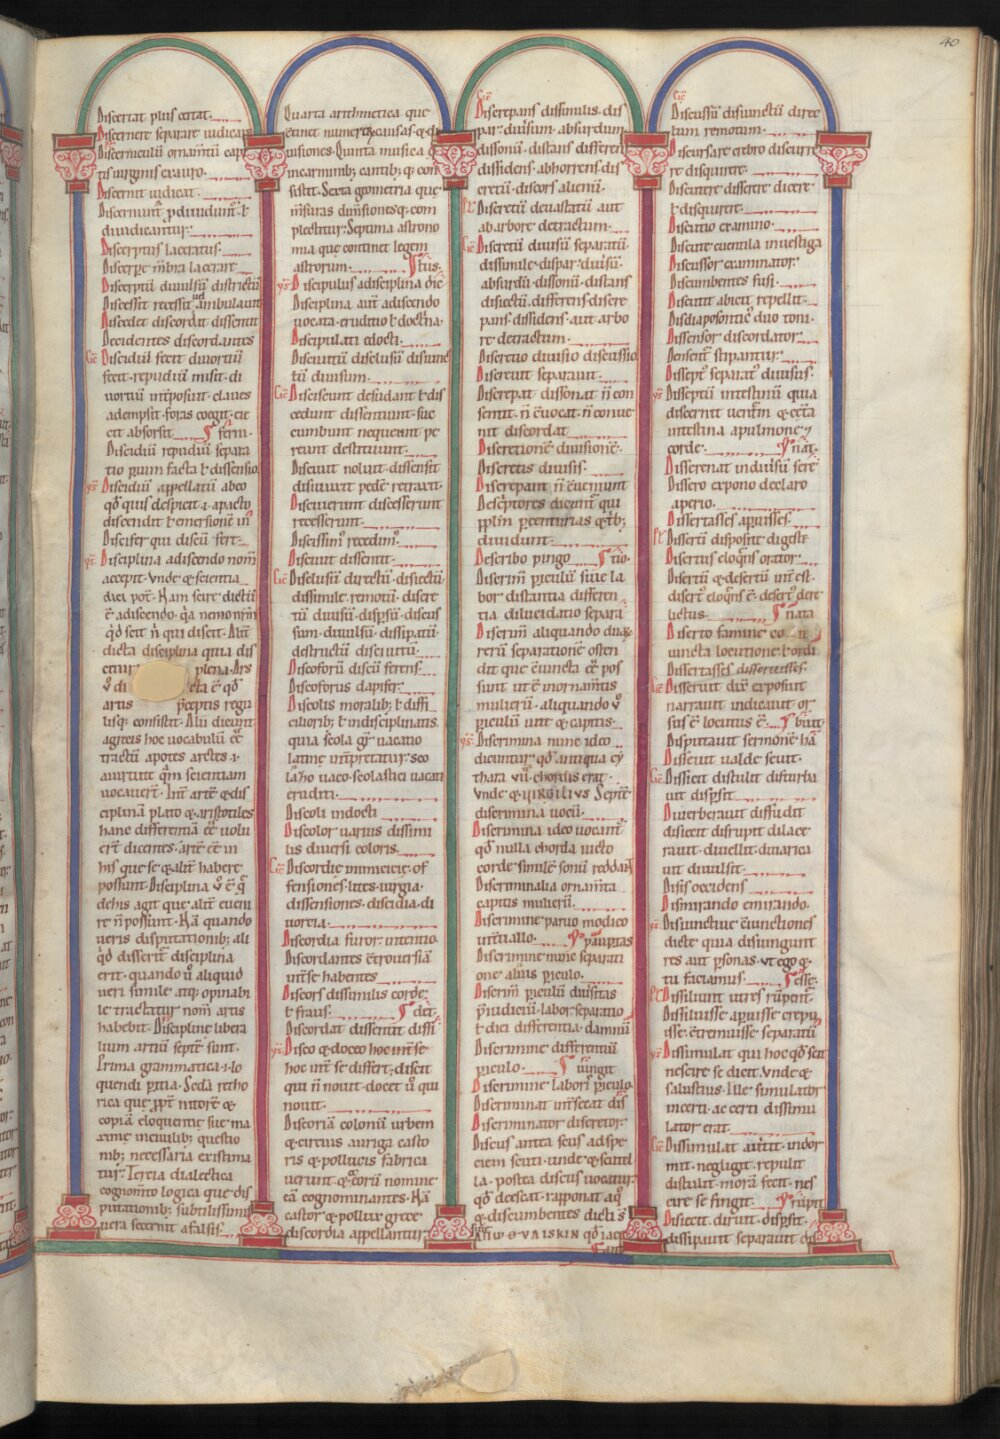 40
Discertat plus certat.
Discernere separare iudicare
Discerniculū ornam̄tū capi
tis virginis ex auro.
Discernit iudicat.
Discerptus laceratus.
Discerpe m̄bra lacerare
Disceptū diuulsū districtū
Discessit recessit ambulauit
Discedet discordat dissentit
Decidentes discordantes
Discidiū fecit diuortiū
fecit. repudiū misit. di
adempsit. foras coegit. eie
cit absorsit
Discidiū repudiū separa
tio
Discidiū appellatū ab eo
Discifer qui discū fert.
Disciplina a discendo nom̄
accepit. vnde & scientia
dici pot̄. Nam scire dictū
dicta disciplina quia dis
plena. Ars
artis p̄ceptis regu
lisq; consistit. Alii dicunt
a grecis hoc uocabulū
uocauer̄t. Int̄ artē & dis
ciplinā plato & aristotiles
hanc differentiā ēē uolu
er̄t dicentes. artē ēē in
his que se & alit̄ habere
possunt. Disciplina
de his agit que alit̄ eueni
re n̄ possunt. Nā quando
ueris disputationib; ali
qd̄ disserit̄ disciplina
erit. quando ū aliquid
ueri simile atq; opinabi
le tractatur nom̄ artis
habebit. Discipline libera
lium artiū septē sunt.
Prima grammatica. i. lo
quendi p̄itia. Scd̄a retho
rica que ꝓpt̄ nitorē &
copiā eloquentie sue ma
xime in ciuilib; questio
nib; necessaria existima
tur. Tercia dialectica
cognom̄to logica que dis
putationib; subtilissimis
uera secernit a falsis.
Quarta arithmetica que
uisiones. Quinta musica
in carminib; cantib; q; con
sistit. Sexta geometria que
m̄suras dim̄sionesq; com
plectitur. Septima astrono
mia que continet legem
astrorum.
Discipulus a disciplina
Disciplina aut̄ a discendo
uocata. eruditio ł doctrina.
Discipulati edocti.
Discinctū disclusū disiunc
tū diuisum.
Disciscunt desudant ł dis
cedunt dissentiunt. suc
cumbunt nequeunt pe
reunt destruunt.
Disciuit noluit. dissensit
Disciuerunt discesserunt
recesserunt.
Discissim̄ recedim̄.
Disciuit dissentit.
Disclusū directū. disiectū.
dissimile. remotū. discre
tū diuisū. disp̄sū. discus
sum. diuulsū. dissipatū.
destructū discinctū
Discoforū discū ferens.
Discoforus dapifer.
Discolis moralib; ł diffi
cilorib; ł indisciplinatis.
quia scola gr̄ uacatio
latine int̄pretatur. sco
la ho uaco. scolastici uacati
eruditi.
Discoli indocti
Discolor uarius dissimi
lis diuersi coloris.
Discordie inimicicie. of
fensiones. lites. iurgia.
dissensiones. discidia. di
uortia.
Discordia furor. intentio.
Discordantes cōtrouersiā
int̄ se habentes
Discors dissimilis corde.
ł fraus.
Discordat dissentit diffi
Disco & doceo hoc int̄ se
hoc int̄ se differt. discit
qui n̄ nouit. docet ū qui
nouit.
Discoriā coloniū urbem
& cireius auriga casto
ris & pollucis fabrica
uerunt & eorū nomine
eā cognominantes. Nā
castor & pollux grece
discordia appellantur.
Discrepans dissimilis. dis
par. diuisum. absurdum
dissonū. distans differen
dissidens. abhorrens. dis
cretū. discors alienū.
Discretū deuastatū aut
ab arbore detractum.
Discretū diuisū separatū.
dissimile. dispar. diuisū.
absurdū. dissonū. distans
disiectū. differens. discre
pans. dissidens. aut arbo
re detractum.
Discretio diuisio discussio
Discreuit separauit.
Discrepat dissonat n̄ con
sentit. n̄ euocat. n̄ conue
nit discordat
Discretionē diuisionē.
Discretis diuisis.
Discrepant n̄ cueniunt
Descriptores dicunt̄ qui
ppl̄m p̄ centurias & trib;
diuidunt.
Describo pingo
Discrim̄ p̄iculū siue la
bor distantia differen
tia dilucidatio separa
Discrim̄ aliquando duarū
rerū separationē osten
dit que cūncta ēē pos
sunt ut ē in ornam̄tis
mulierū. aliquando ū
p̄iculū uite & capitis.
Discrimina nunc ideo
dicuntur qd̄ antiqua cy
thara VII. chordis erat.
Vnde & VIRGILIVS Septē
discrimina uocū.
Discrimina ideo uocant̄
qd̄ nulla chorda iuncto
corde similē sonū reddat
Discriminalia ornam̄ta
capitis mulierū.
Discrimine paruo modico
int̄uallo.
Discrimine nunc separati
one alius p̄iculo.
Discrim̄ p̄iculū diuisitas
p̄iudiciū. labor. separatio
ł dici differentia. damnū
Discrimine differentiū
p̄iculo.
Discrimine labori p̄iculo.
Discriminat int̄secat dis
Discriminator discretor.
Discus antea scus ad spe
ciem scuti. unde & scutel
la. postea discus uocatur
qd̄ det escā. i. apponat. a q̄
& discumbentes dicti s̄
qd̄ iace
Discussū disiunctū direc
tum remotum.
Discursare crebro discurre
re disquirere.
Discutere disserere dicere
ł disquirere.
Discutio examino.
Discute euentila inuestiga
Discussor examinator.
Discumbentes fusi.
Discutit abicit repellit.
Disdiaposonticȩ duo toni.
Dissensor discordator
Densent̄ stipantur.
Dissept̄ separat̄ diuisus.
Disseptū intestinū quia
discernit uentrē & cetā
intestina a pulmone 7
corde.
Disserenat in diuisū serē
Dissero expono declaro
aperio.
Dissertasses ap̄uisses.
Disserū disposit̄ digeste
Disertus eloqn̄s orator.
Disertū & desertū int̄ est.
disert̄ eloqn̄s ē. desert̄ dere
lictus.
Diserto famine
uncta locutione. ł ordi
Dissertasses disseruisses.
Disseruit dix̄ exposuit
narrauit indicauit or
sus ē locutus ē.
Disputauit sermonē
Disseuit ualde seuit.
Dissicit distulit disturba
uit disp̄sit.
Diuerberauit diffudit
disiecit disrupit dilace
rauit. diuellit. diuarica
uit diuulsit.
Disis occidens
Dismirando emirando.
Disiunctiue cūunctiones
dicte quia disiungunt
res aut p̄sonas. vt ego &
tu faciamus.
Dissiliunt uires rūpent̄.
Dissiluisse ap̄uisse crepu
isse. cōtremuisse separatū
Dissimulat qui hoc qd̄ scit
nescire se dicit. vnde &
salustius. Ille simulator
incerti. ac certi dissimu
lator erat
Dissimulat auertit. indor
mit. neglegit. repulit
distulit. morā fecit. nes
cire se fingit.
Disiecit. diruit. disp̄sit.
dissipauit separauit